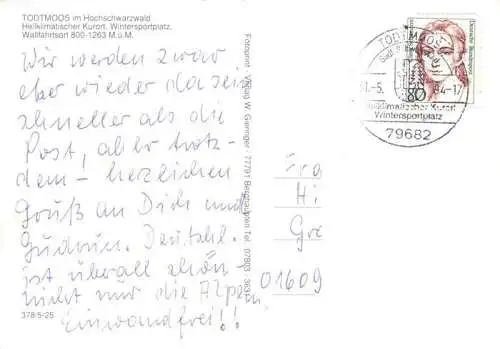 TODTMOOS im Hochschwarzwald
Heilklimatischer Kurort. Wintersportplatz.
Wallfahrtsort 800-1263 M.ü.M.
Wir werden zwar
eher wieder da sein
schneller als die
Post, aber trotz-
dem – herzlichen
Gruß an Dich und
Gudrun. Deutschl.
ist überall schön
nicht nur die Alpen!
Einwandfrei!!
378/5-25
Fotoprint Verlag W. Gieringer · 77791 Berghaupten Tel. 07803
TODTMOOS
1.-5. 94-17
Heilklimatischer Kurort
Wintersportplatz
79682
80
Deutsche Bundespost
Fra
Hi
Gr
01609